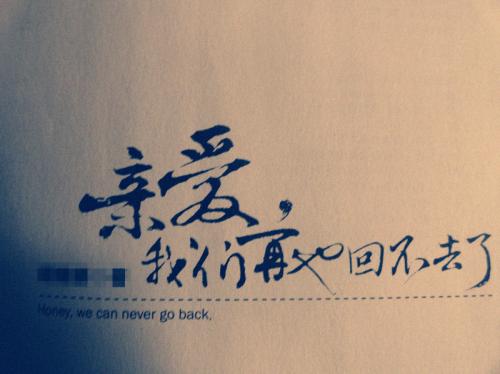 亲爱，
我们再也回不去了
Honey, we can never go back.